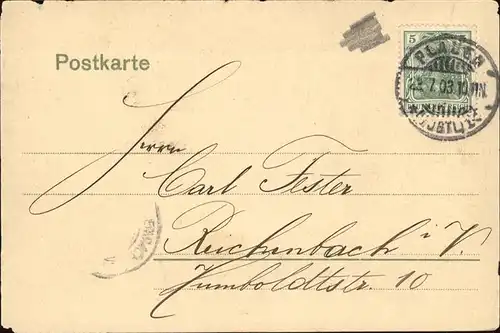 Postkarte
5
PLAUEN
7.03.10
(VOGTL)
Herrn
Carl Fester
Reichenbach i/V.
Humboldtstr. 10